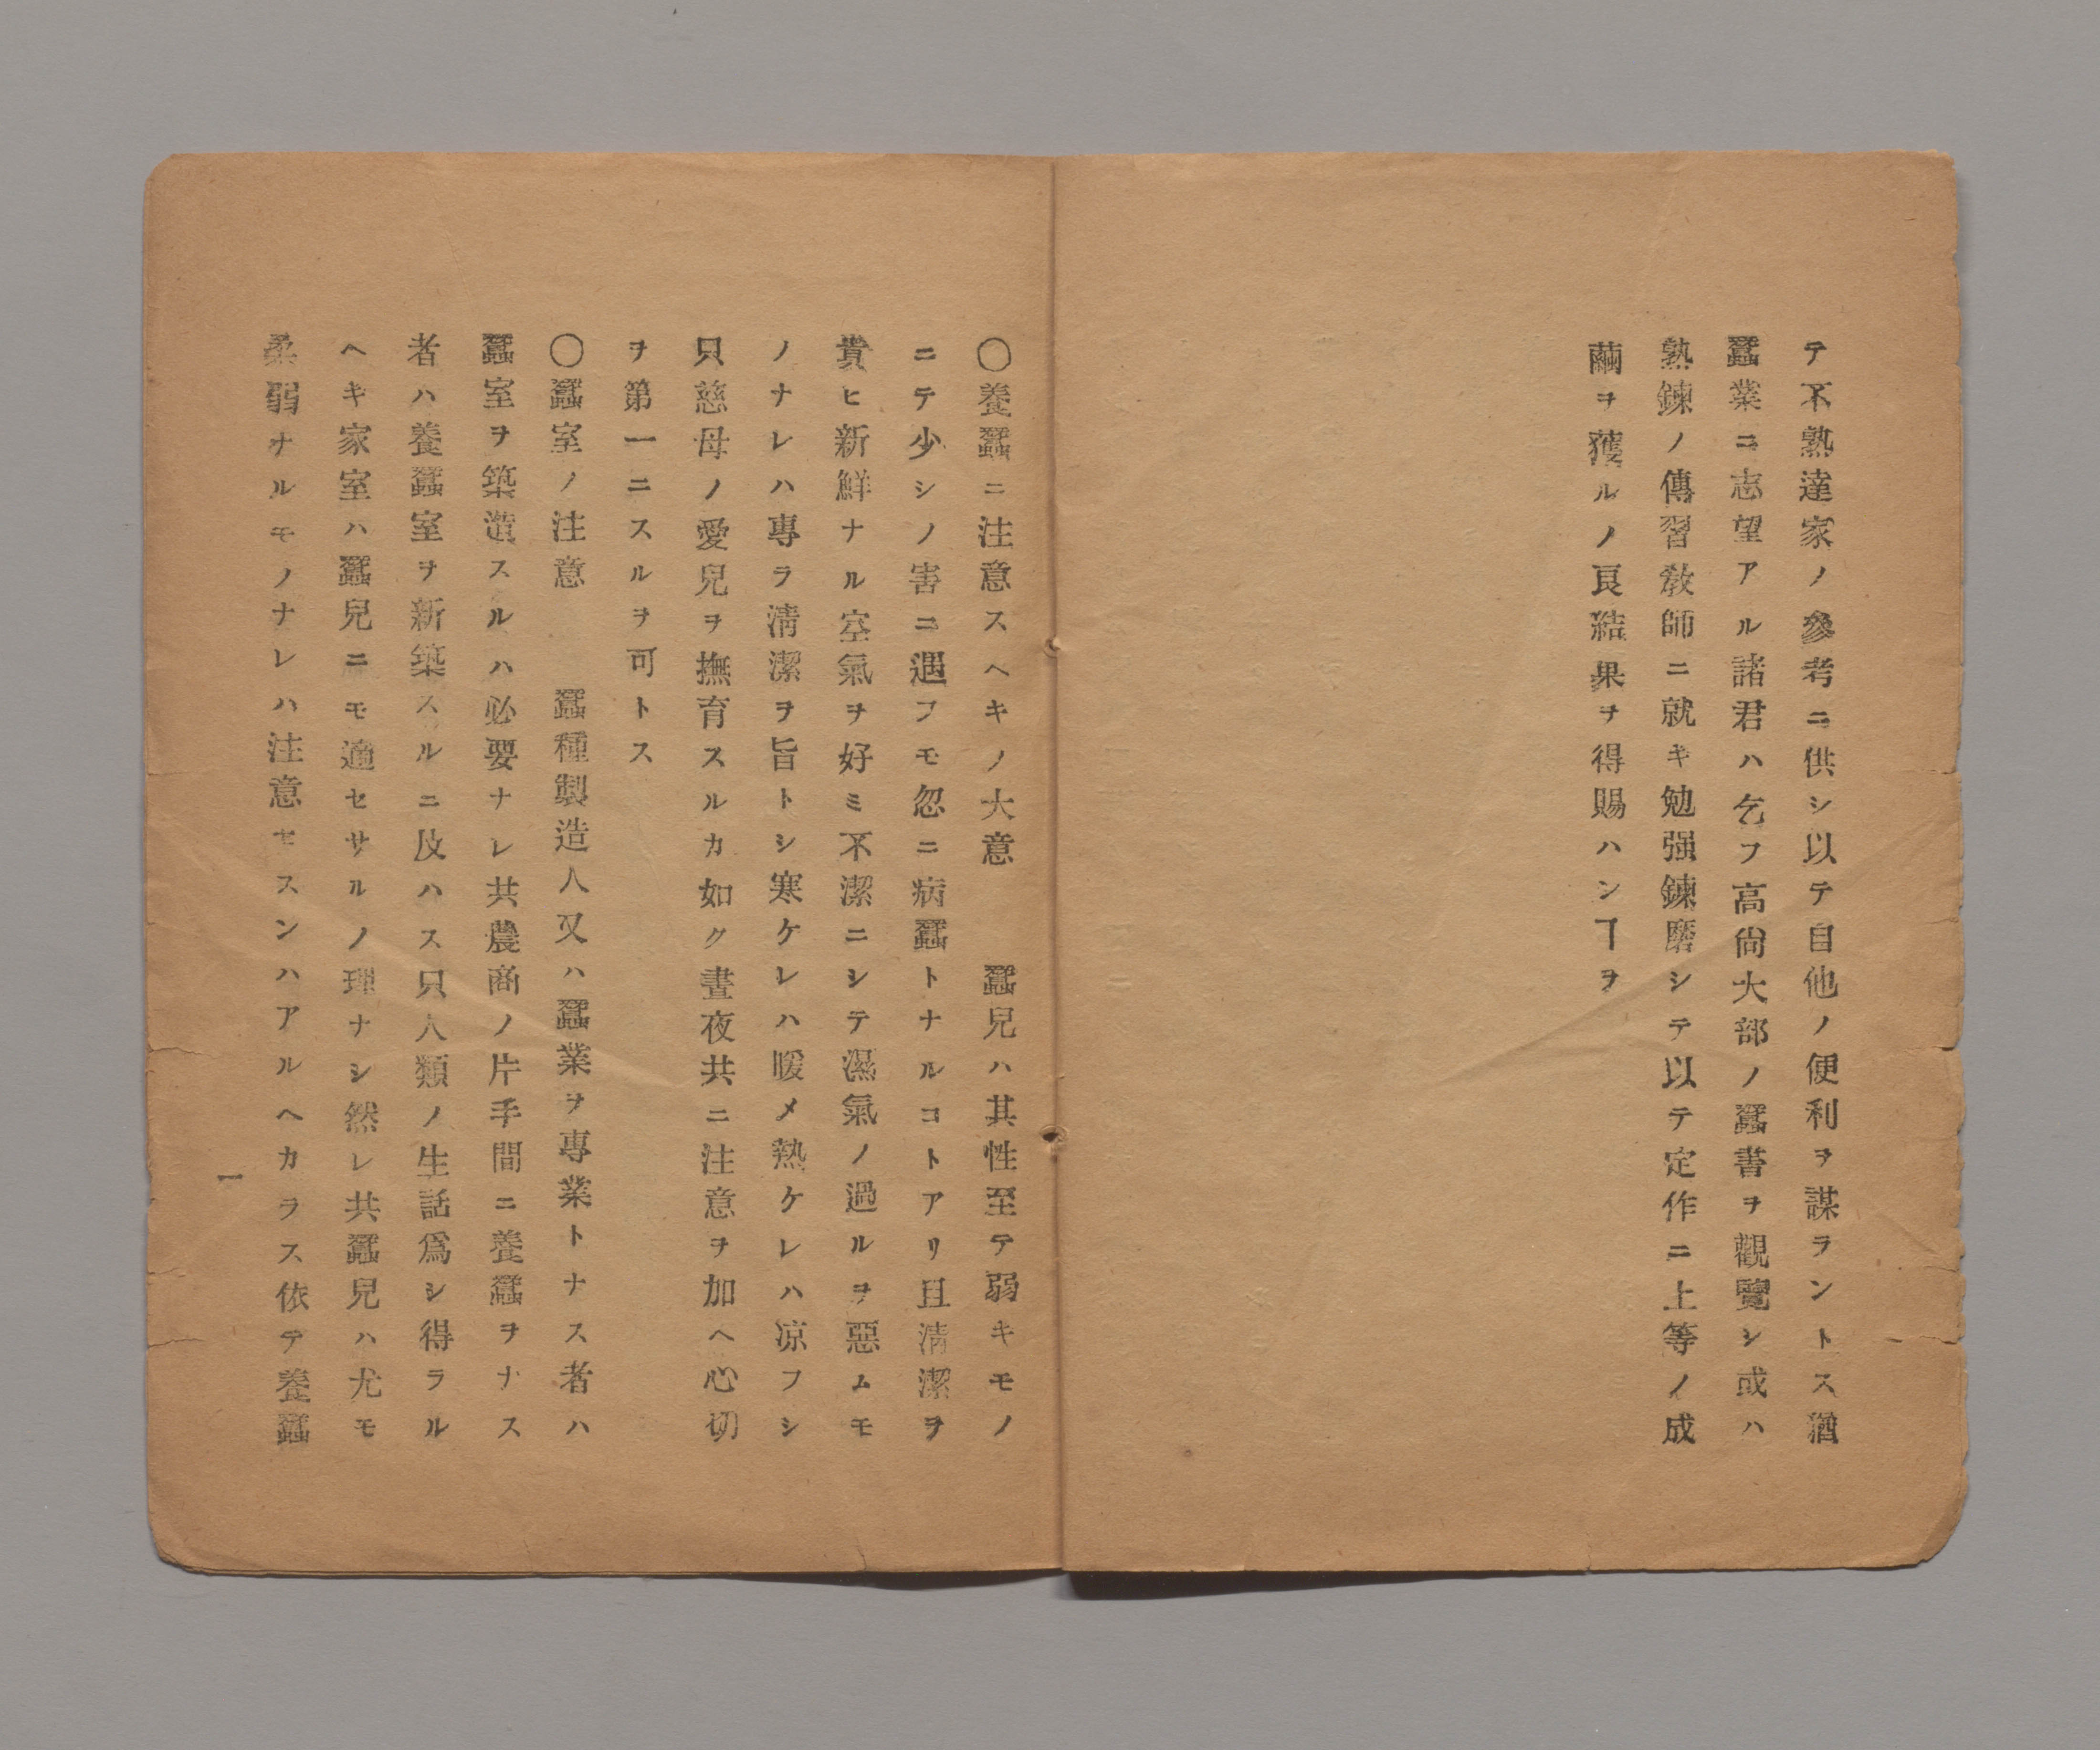 テ不熟達家ノ參考ニ供シ以テ自他ノ便利ヲ謀ラントス猶
蠶業ニ志望アル諸君ハ乞フ高尙大部ノ蠶書ヲ觀覽シ或ハ
熟鍊ノ傳習敎師ニ就キ勉强鍊磨シテ以テ定作ニ上等ノ成
繭ヲ獲ルノ良結果ヲ得賜ハンヿヲ
〇養蠶ニ注意スヘキノ大意　蠶兒ハ其性至テ弱キモノ
ニテ少シノ害ニ遇フモ忽ニ病蠶トナルコトアリ且淸潔ヲ
貴ヒ新鮮ナル空氣ヲ好ミ不潔ニシテ濕氣ノ過ルヲ惡ムモ
ノナレハ專ラ淸潔ヲ旨トシ寒ケレハ暖メ熱ケレハ凉フシ
只慈母ノ愛兒ヲ撫育スルカ如ク晝夜共ニ注意ヲ加ヘ心切
ヲ第一ニスルヲ可トス
〇蠶室ノ注意　蠶種製造人又ハ蠶業ヲ專業トナス者ハ
蠶室ヲ築造スルハ必要ナレ共農商ノ片手間ニ養蠶ヲナス
者ハ養蠶室ヲ新築スルニ及ハス只人類ノ生話爲シ得ラル
ヘキ家室ハ蠶兒ニモ適セサルノ理ナシ然レ共蠶兒ハ尤モ
柔弱ナルモノナレハ注意セスンハアルヘカラス依テ養蠶
一